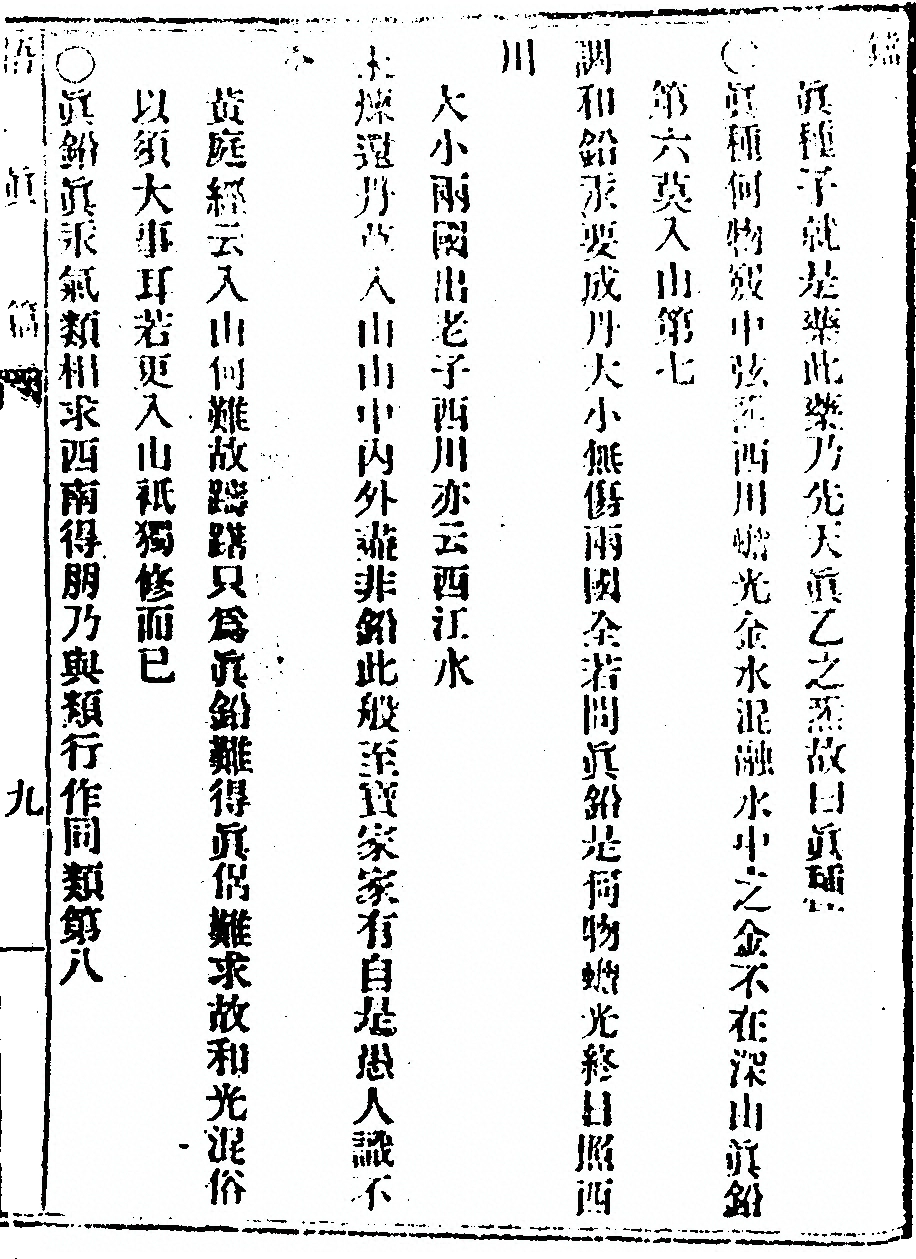 眞種子就是藥此藥乃先天眞乙之炁故曰眞種
〇眞種何物竅中弦炁西川蟾光金水混融水中之金不在深山眞鉛
第六莫入山第七
調和鉛汞要成丹大小無傷兩國全若問眞鉛是何物蟾光終日照西
川
大小兩國出老子西川亦云西江水
未煉還丹莫入山山中內外盡非鉛此般至寶家家有自是愚人識不
黃庭經云入山何難故躊躇只爲眞鉛難得眞侶難求故和光混俗
以須大事耳若更入山衹獨修而已
〇眞鉛眞汞氣類相求西南得朋乃與類行作同類第八
悟眞篇
九